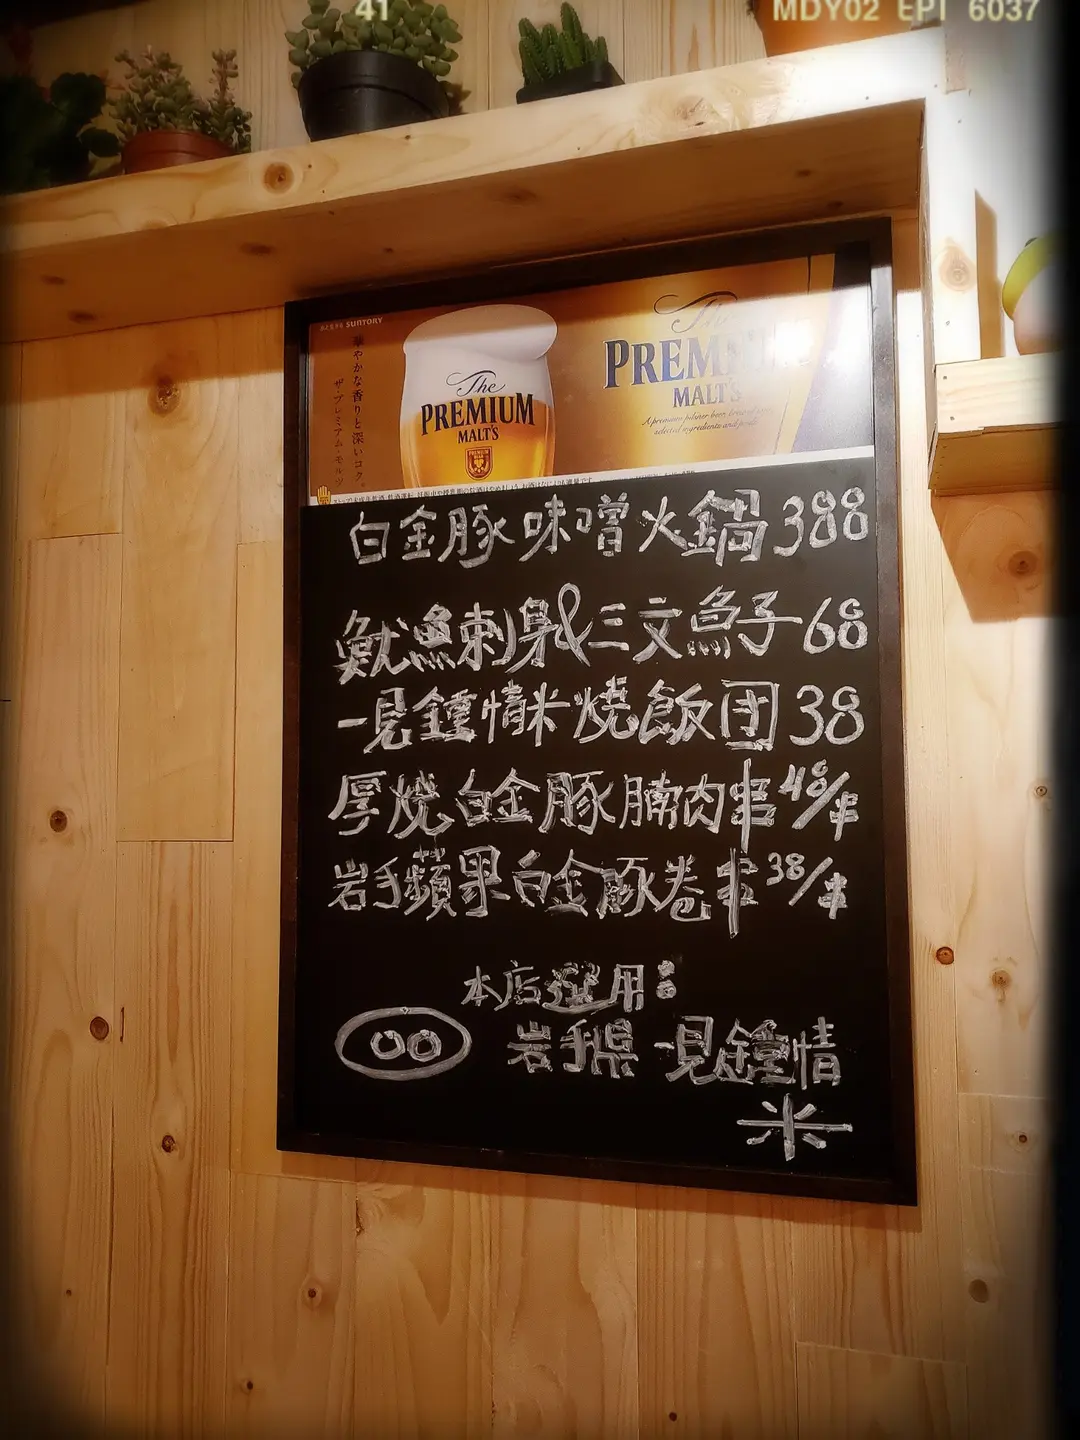 41
MDY02 EPI 6037
SUNTORY
華やかな香りと深いコク。
ザ・プレミアム・モルツ
The
PREMIUM
MALT'S
The
PREM
MALT'S
白金豚味噌火鍋388
魷魚刺身&三文魚子68
一見鐘情米燒飯团38
厚燒白金豚腩肉串48/串
岩手蘋果白金豚卷串38/串
本店選用:
岩手県 一見鐘情
米